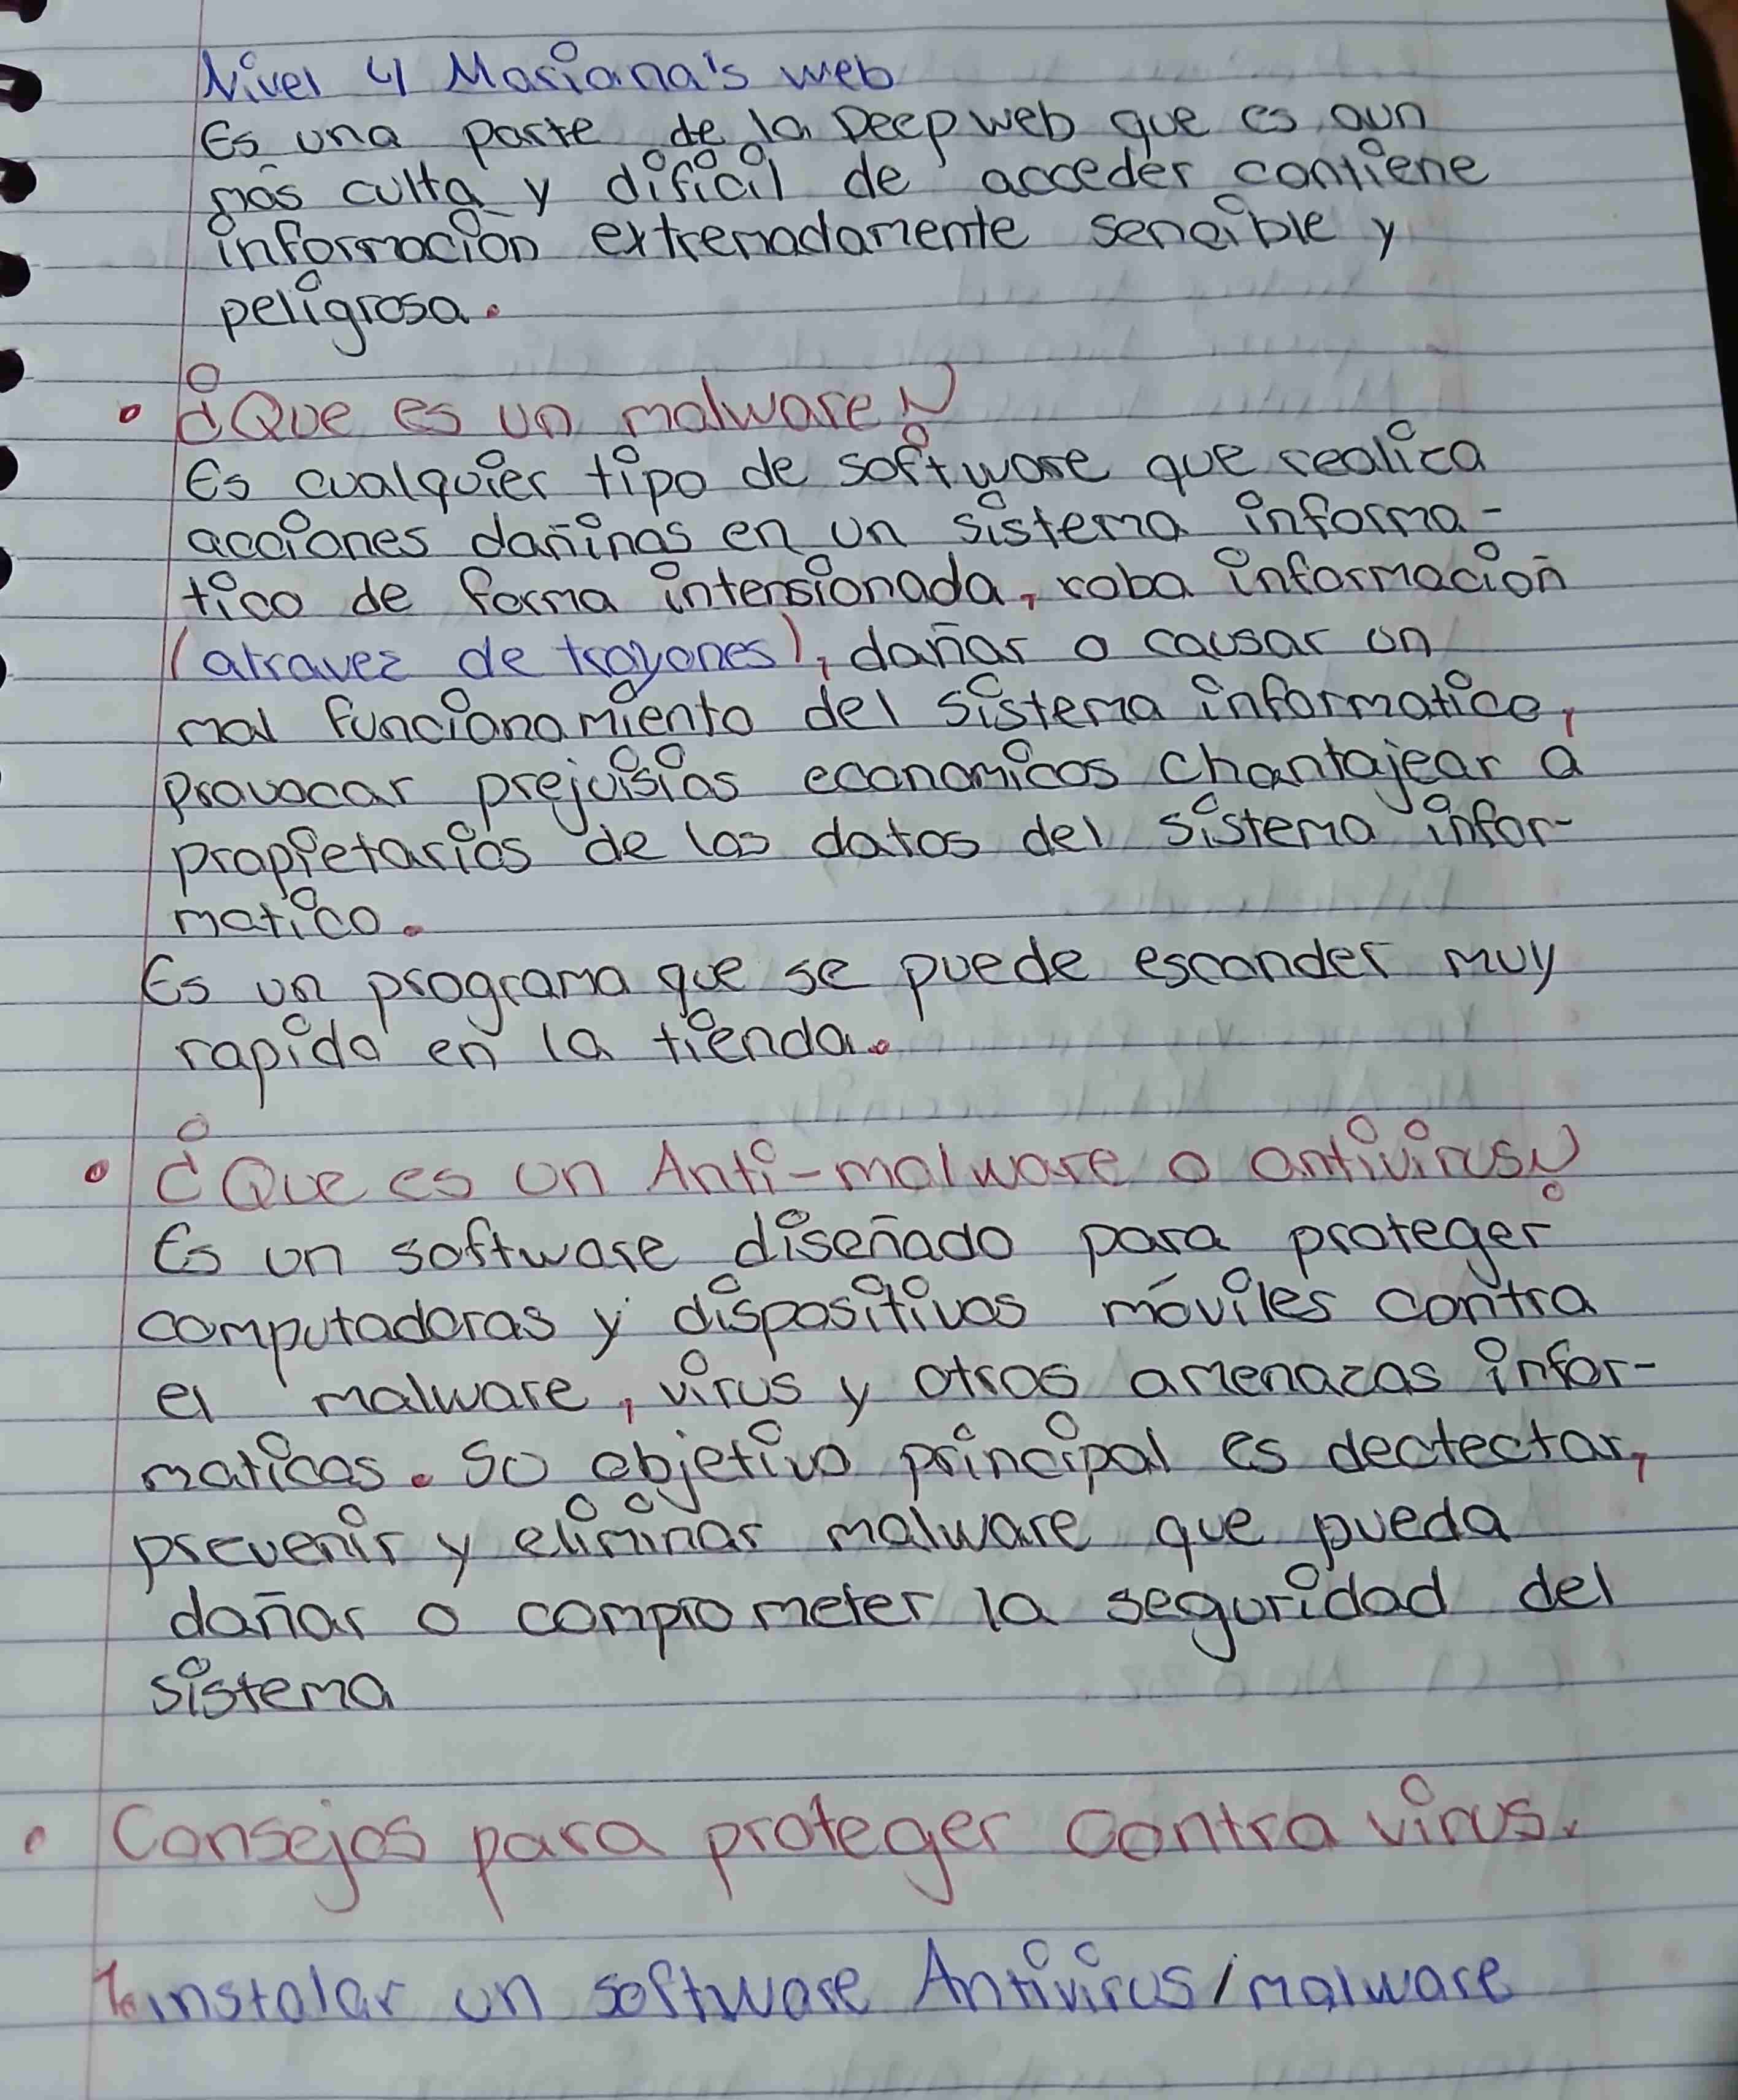 Nivel 4 Mariana's web
Es una parte de la Deep web que es aun
más culta y dificil de acceder contiene
información extremadamente sencible y
peligrosa.
• ¿Que es un malware?
Es cualquier tipo de software que realiza
acciones dañinas en un sistema informa-
tico de forma intensionada, roba información
(atravez de troyanos), dañar o causar un
mal funcionamiento del sistema informatico,
provocar prejuisios economicos chantajear a
propietarios de los datos del sistema infor-
matico.
Es un programa que se puede esconder muy
rapido en la tienda.
• ¿Que es un Anti-malware o antivirus?
Es un software diseñado para proteger
computadoras y dispositivos móviles contra
el malware, virus y otras amenazas infor-
maticas. Su objetivo principal es dectectar,
prevenir y eliminar malware que pueda
dañar o comprometer la seguridad del
sistema
• Consejos para proteger contra virus.
1. instalar un software Antivirus/malware